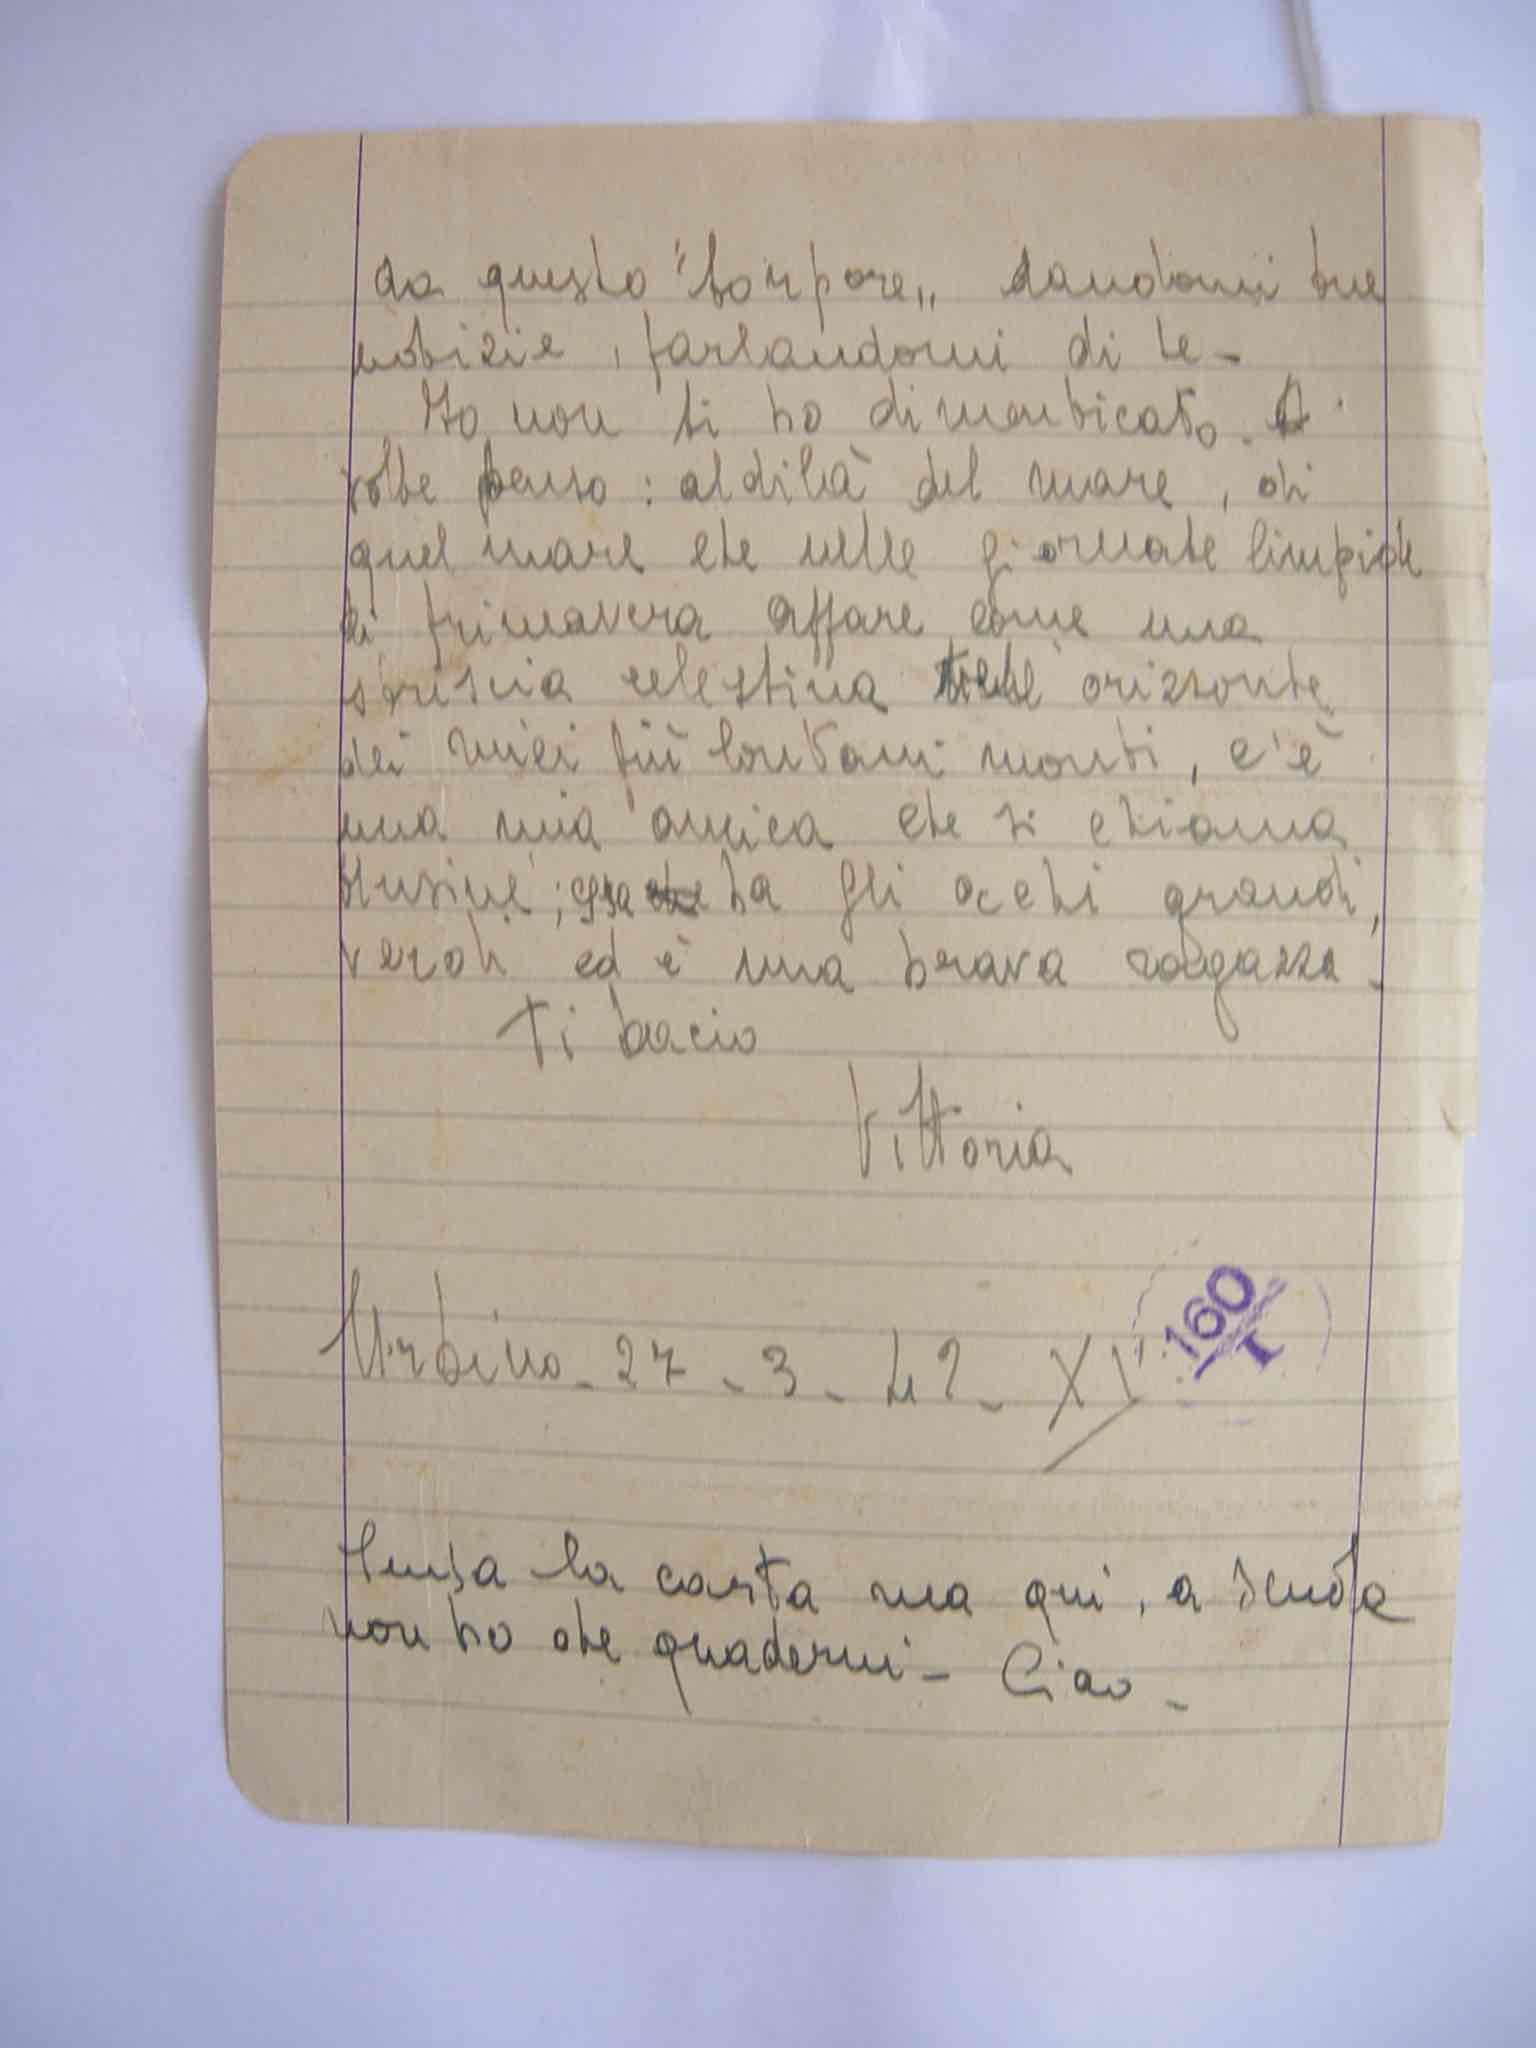 da questo "torpore„ dandomi tue
notizie, parlandomi di te -
Io non ti ho dimenticato. A
volte penso: aldilà del mare, di
quel mare che nelle giornate limpide
di primavera appare come una
striscia celestina orizzonte
dei miei più lontani monti, c'è
una mia amica che si chiama
; essa ha gli occhi grandi,
verdi ed è una brava ragazza -
Ti bacio
Vittoria
Urbino - 27 - 3 - 42 - XX
160
I
Scusa la carta ma qui, a scuola
non ho che quaderni - Ciao -